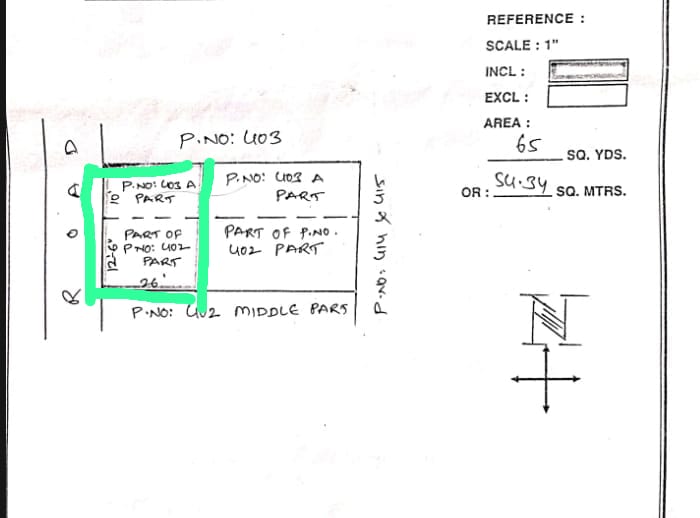 REFERENCE :
SCALE : 1"
INCL :
EXCL :
AREA :
65 SQ. YDS.
OR : 54.34 SQ. MTRS.
ROAD
P.NO: 403
P.NO: 403 A
PART
10'
P.NO: 403 A
PART
PART OF
P.NO: 402
PART
12'-6"
26'
PART OF P.NO.
402 PART
P.NO: 402 MIDDLE PART
P.NO: 414 & 415
N